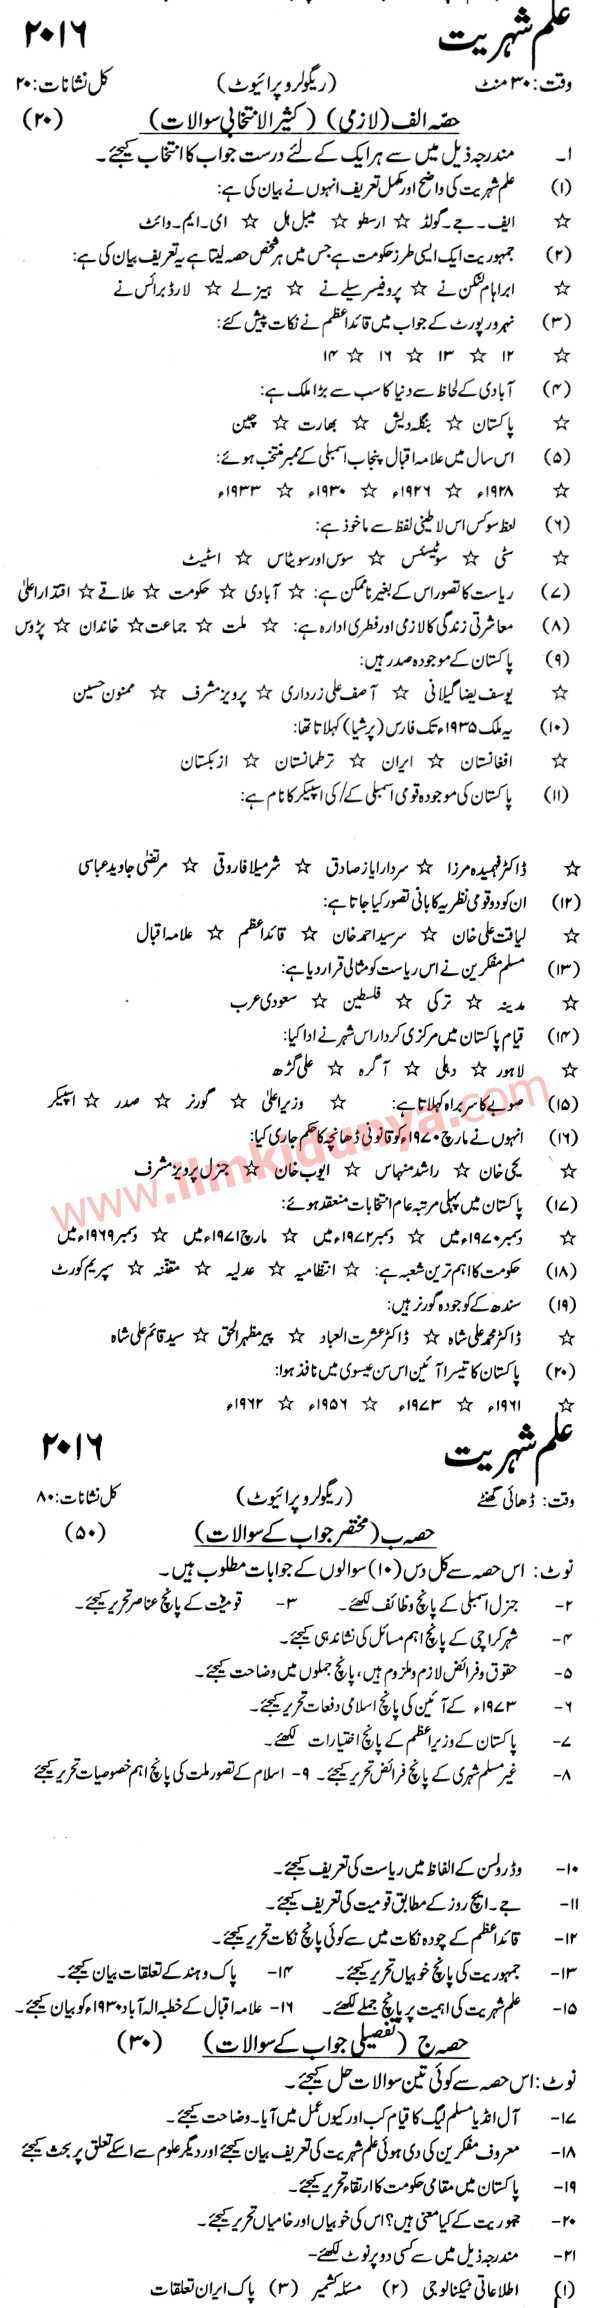 علم شہریت ۲۰۱۶
وقت: ۳۰ منٹ (ریگولر و پرائیوٹ) کل نشانات: ۲۰
حصّہ الف (لازمی) (کثیر الانتخابی سوالات) (۲۰)
۱۔ مندرجہ ذیل میں سے ہر ایک کے لئے درست جواب کا انتخاب کیجئے۔
(۱) علم شہریت کی واضح اور مکمل تعریف انہوں نے بیان کی ہے:
☆ ایف۔جے۔گولڈ ☆ ارسطو ☆ میبل ہل ☆ ای۔ایم۔وائٹ
(۲) جمہوریت ایک ایسی طرز حکومت ہے جس میں ہر شخص حصہ لیتا ہے یہ تعریف بیان کی ہے:
☆ ابراہام لنکن نے ☆ پروفیسر سیلے نے ☆ ہیزلے ☆ لارڈ برائس نے
(۳) نہرو رپورٹ کے جواب میں قائد اعظم نے نکات پیش کئے:
☆ ۱۲ ☆ ۱۳ ☆ ۱۶ ☆ ۱۴
(۴) آبادی کے لحاظ سے دنیا کا سب سے بڑا ملک ہے:
☆ پاکستان ☆ بنگلہ دیش ☆ بھارت ☆ چین
(۵) اس سال میں علامہ اقبال پنجاب اسمبلی کے ممبر منتخب ہوئے:
☆ ۱۹۲۸ء ☆ ۱۹۲۶ء ☆ ۱۹۳۰ء ☆ ۱۹۳۳ء
(۶) لفظ سوکس اس لاطینی لفظ سے ماخوذ ہے:
☆ سٹی ☆ سوٹیسٹس ☆ سوس اور سویٹاس ☆ اسٹیٹ
(۷) ریاست کا تصور اس کے بغیر ناممکن ہے: ☆ آبادی ☆ حکومت ☆ علاقے ☆ اقتدار اعلیٰ
(۸) معاشرتی زندگی کا لازمی اور فطری ادارہ ہے: ☆ ملت ☆ جماعت ☆ خاندان ☆ پڑوس
(۹) پاکستان کے موجودہ صدر ہیں:
☆ یوسف رضا گیلانی ☆ آصف علی زرداری ☆ پرویز مشرف ☆ ممنون حسین
(۱۰) یہ ملک ۱۹۳۵ء تک فارس (پرشیا) کہلاتا تھا:
☆ افغانستان ☆ ایران ☆ ترکمانستان ☆ ازبکستان
(۱۱) پاکستان کی موجودہ قومی اسمبلی کے/کی اسپیکر کا نام ہے:
☆ ڈاکٹر فہمیدہ مرزا ☆ سردار ایاز صادق ☆ شرمیلا فاروقی ☆ مرتضیٰ جاوید عباسی
(۱۲) ان کو دو قومی نظریہ کا بانی تصور کیا جاتا ہے:
☆ لیاقت علی خان ☆ سر سید احمد خان ☆ قائد اعظم ☆ علامہ اقبال
(۱۳) مسلم مفکرین نے اس ریاست کو مثالی قرار دیا ہے:
☆ مدینہ ☆ ترکی ☆ فلسطین ☆ سعودی عرب
(۱۴) قیام پاکستان میں مرکزی کردار اس شہر نے ادا کیا:
☆ لاہور ☆ دہلی ☆ آگرہ ☆ علی گڑھ
(۱۵) صوبے کا سربراہ کہلاتا ہے: ☆ وزیر اعلیٰ ☆ گورنر ☆ صدر ☆ اسپیکر
(۱۶) انہوں نے مارچ ۱۹۷۰ء کو قانونی ڈھانچہ کا حکم جاری کیا:
☆ یحییٰ خان ☆ راشد منہاس ☆ ایوب خان ☆ جنرل پرویز مشرف
www.ilmkidunya.com
(۱۷) پاکستان میں پہلی مرتبہ عام انتخابات منعقد ہوئے:
☆ دسمبر ۱۹۷۰ء میں ☆ دسمبر ۱۹۷۲ء میں ☆ مارچ ۱۹۷۱ء میں ☆ دسمبر ۱۹۶۹ء میں
(۱۸) حکومت کا اہم ترین شعبہ ہے: ☆ انتظامیہ ☆ عدلیہ ☆ مقننہ ☆ سپریم کورٹ
(۱۹) سندھ کے کوجودہ گورنر ہیں:
☆ ڈاکٹر محمد علی شاہ ☆ ڈاکٹر عشرت العباد ☆ پیر مظہر الحق ☆ سید قائم علی شاہ
(۲۰) پاکستان کا تیسرا آئین اس سن عیسوی میں نافذ ہوا:
☆ ۱۹۶۱ء ☆ ۱۹۷۳ء ☆ ۱۹۵۶ء ☆ ۱۹۶۲ء
علم شہریت ۲۰۱۶
وقت: ڈھائی گھنٹے (ریگولر و پرائیوٹ) کل نشانات: ۸۰
حصہ ب (مختصر جواب کے سوالات) (۵۰)
نوٹ: اس حصہ سے کل دس (۱۰) سوالوں کے جوابات مطلوب ہیں۔
۲- جنرل اسمبلی کے پانچ وظائف لکھئے۔ ۳- قومیت کے پانچ عناصر تحریر کیجئے۔
۴- شہر کراچی کے پانچ اہم مسائل کی نشاندہی کیجئے۔
۵- حقوق و فرائض لازم و ملزوم ہیں، پانچ جملوں میں وضاحت کیجئے۔
۶- ۱۹۷۳ء کے آئین کی پانچ اسلامی دفعات تحریر کیجئے۔
۷- پاکستان کے وزیر اعظم کے پانچ اختیارات لکھئے۔
۸- غیر مسلم شہری کے پانچ فرائض تحریر کیجئے۔ ۹- اسلام کے تصور ملت کی پانچ اہم خصوصیات تحریر کیجئے
۱۰- وڈرو لسن کے الفاظ میں ریاست کی تعریف کیجئے۔
۱۱- جے۔ایچ روز کے مطابق قومیت کی تعریف کیجئے۔
۱۲- قائد اعظم کے چودہ نکات میں سے کوئی پانچ نکات تحریر کیجئے۔
۱۳- جمہوریت کی پانچ خوبیاں تحریر کیجئے۔ ۱۴- پاک و ہند کے تعلقات بیان کیجئے۔
۱۵- علم شہریت کی اہمیت پر پانچ جملے لکھئے۔ ۱۶- علامہ اقبال کے خطبہ الہ آباد ۱۹۳۰ء کو بیان کیجئے۔
حصہ ج (تفصیلی جواب کے سوالات) (۳۰)
نوٹ: اس حصہ سے کوئی تین سوالات حل کیجئے۔
۱۷- آل انڈیا مسلم لیگ کا قیام کب اور کیوں عمل میں آیا۔ وضاحت کیجئے۔
۱۸- معروف مفکرین کی دی ہوئی علم شہریت کی تعریف بیان کیجئے اور دیگر علوم سے اسکے تعلق پر بحث کیجئے
۱۹- پاکستان میں مقامی حکومت کا ارتقاء تحریر کیجئے۔
۲۰- جمہوریت کے کیا معنی ہیں؟ اس کی خوبیاں اور خامیاں تحریر کیجئے۔
۲۱- مندرجہ ذیل میں سے کسی دو پر نوٹ لکھئے۔
(۱) اطلاعاتی ٹیکنالوجی (۲) مسئلہ کشمیر (۳) پاک ایران تعلقات